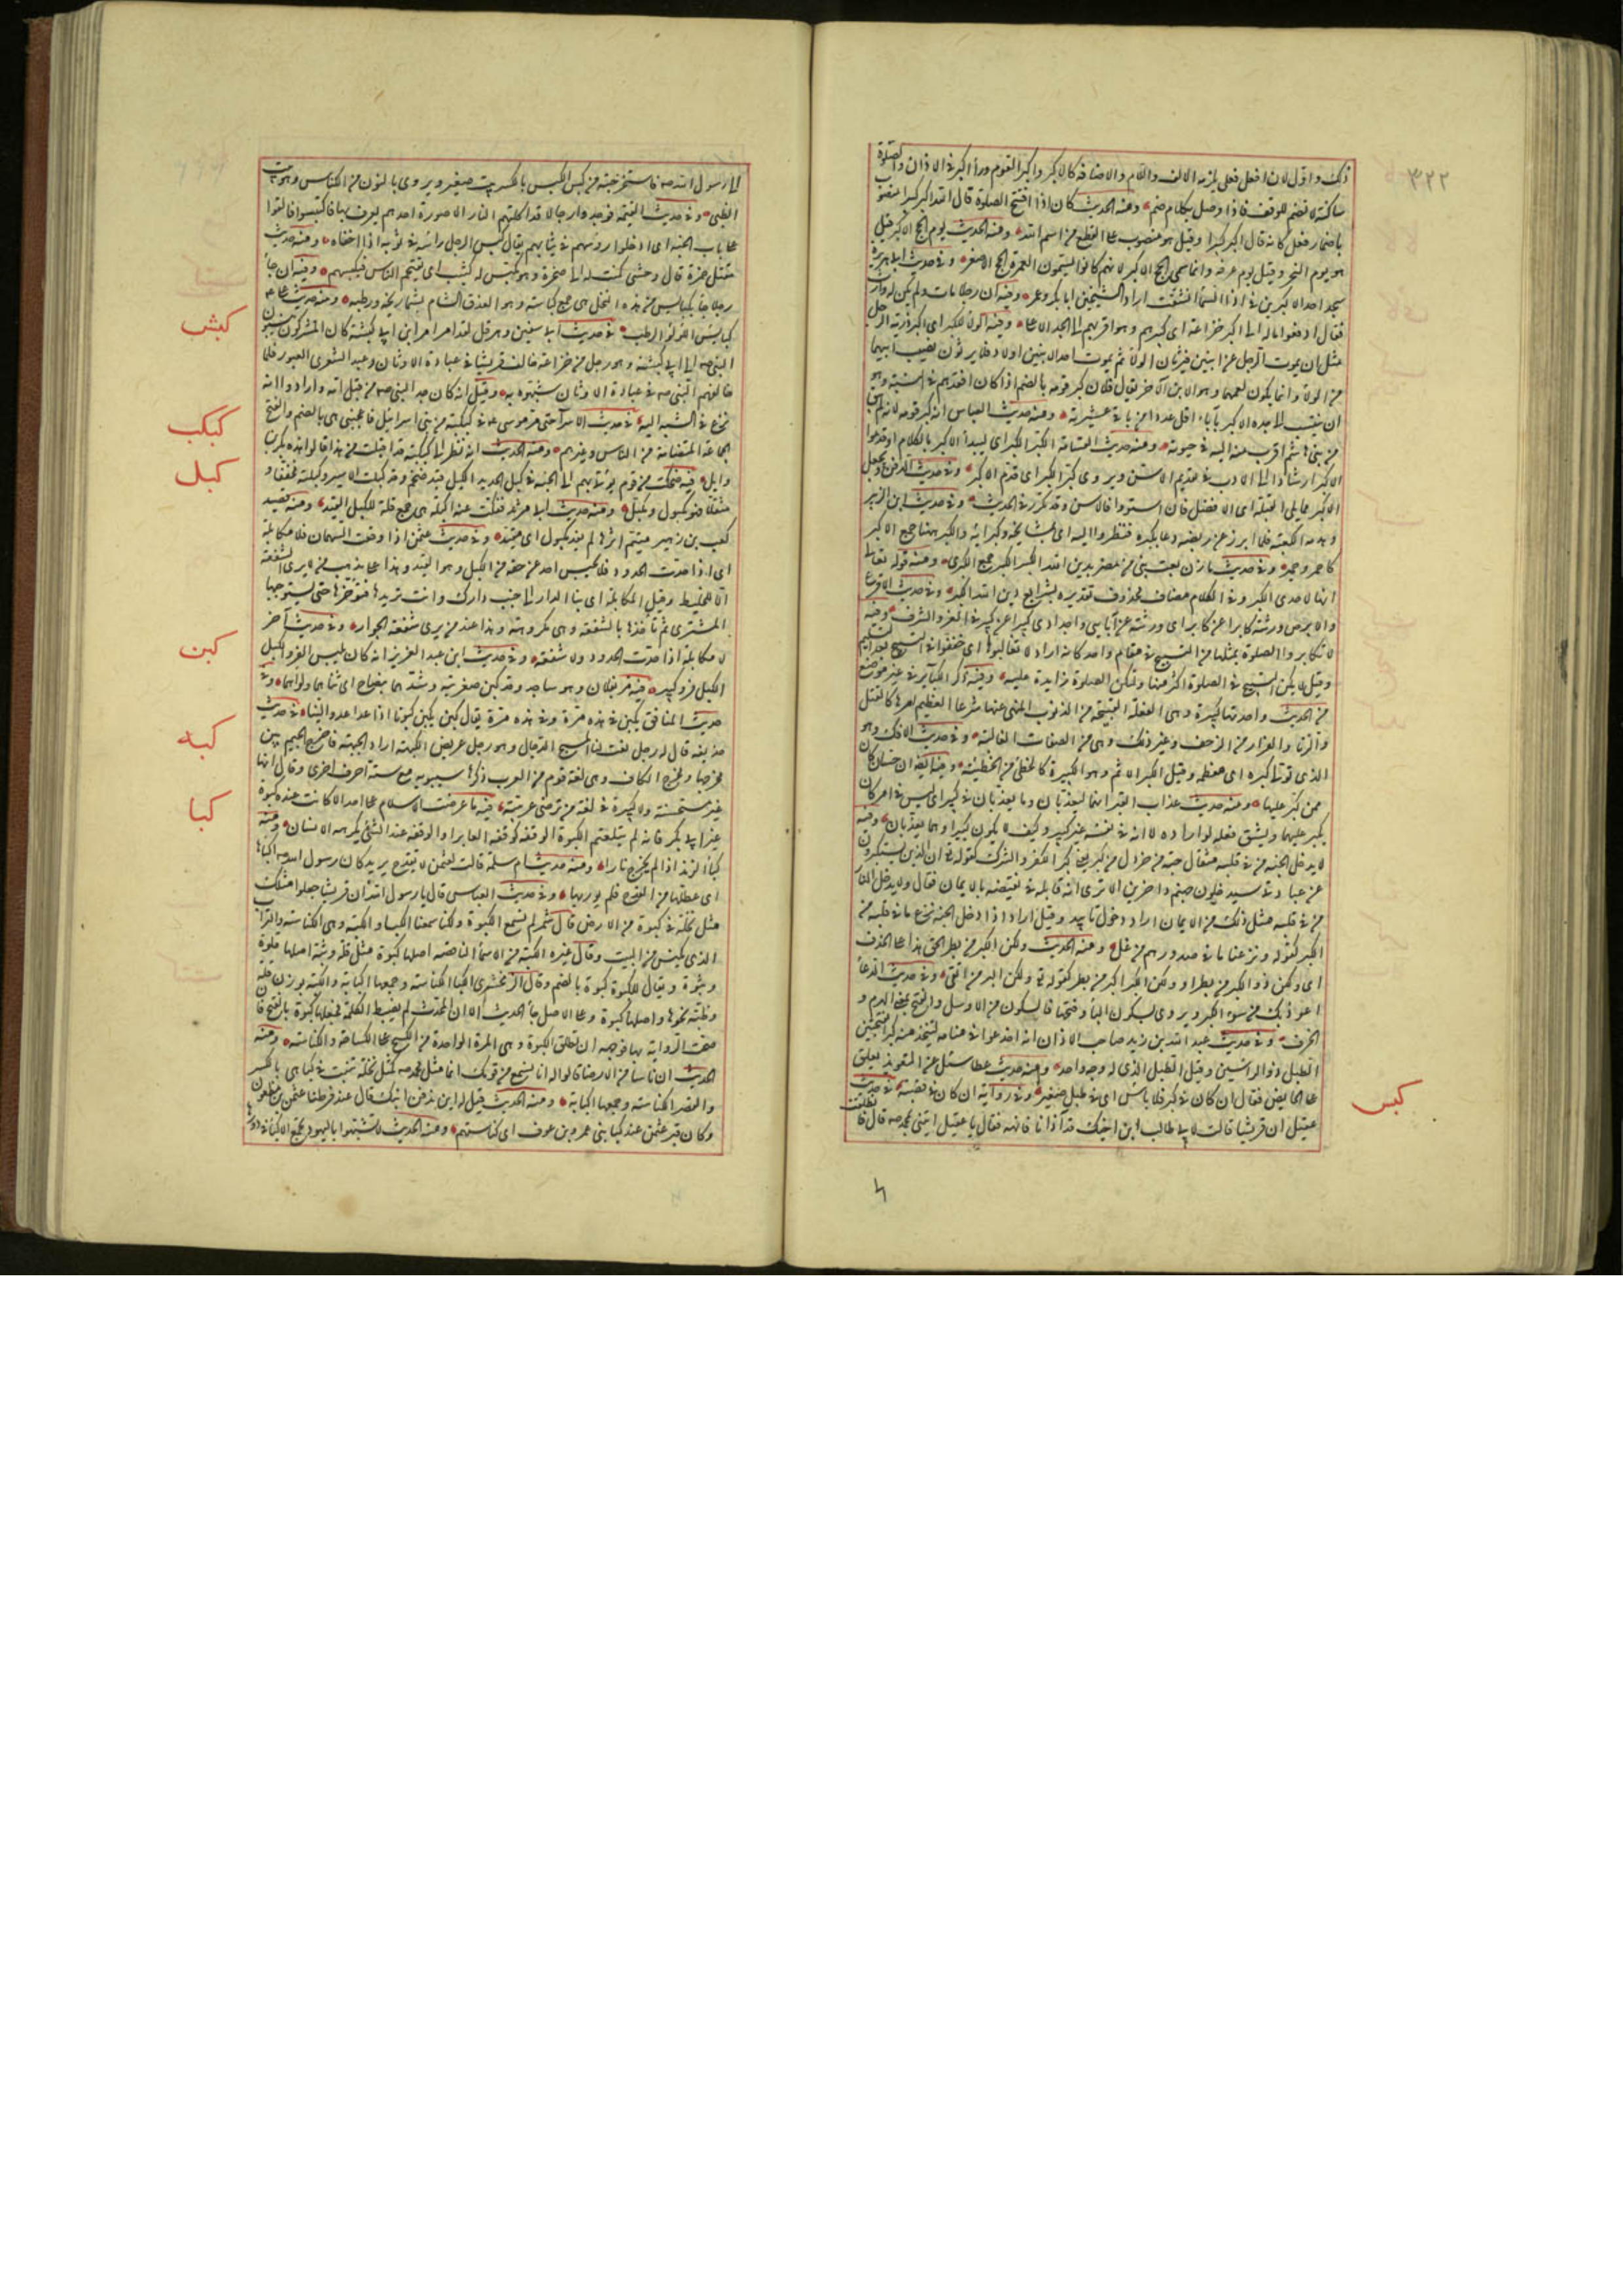 ٣٢٢
ذلك واقول لان افعل فعلى يلزمه الالف واللام والاضافة كالاكبر واكبر القوم وراء اكبر في الاذان والصلوة
ساكنة لا تضم للوقف فاذا وصل بكلام ضم ومنه الحديث كان اذا افتتح الصلوة قال الله اكبر كبيرا منصوب
باضمار فعل كانه قال اكبر كبيرا وقيل هو منصوب على القطع من اسم الله ومنه الحديث يوم الحج الاكبر قيل
هو يوم النحر وقيل يوم عرفة وانما سمى الحج الاكبر لانهم كانوا يسمون العمرة الحج الاصغر وفي حديث ابي هريرة
سجد احد الاكبرين في اذا السماء انشقت اراد الشيخين ابا بكر وعمر وفيه ان رجلا مات ولم يكن له وارث
فقال ادفعوا ماله الى اكبر خزاعة اى كبيرهم وهو اقربهم الى الجد الاعلى وفيه الولاء للكبر اى اكبر ذرية الرجل
مثل ان يموت الرجل عن ابنين فيرثان الولاء ثم يموت احد الابنين عن اولاد فلا يرثون نصيب ابيهما
من الولاء وانما يكون لعمهم وهو الابن الآخر يقال فلان كبر قومه بالضم اذا كان اقعدهم في النسبة وهو
ان ينتسب الى جده الاكبر بآباء اقل عددا من باقي عشيرته ومنه حديث العباس انه كبر قومه لانه لم يبق
من بني هاشم اقرب منه اليه في حيوته ومنه حديث القسامة الكبر الكبر اى ليبدأ الاكبر بالكلام او قدموا
الاكبر ارشادا الى الادب في تقديم الاسن ويروى كبر الكبر اى قدم الاكبر وفي حديث الدفن ويجعل
الاكبر مما يلى القبلة اى الافضل فان استووا فالاسن وقد تكرر في الحديث وفي حديث ابن الزبير
وهدمه الكعبة فلما ابرز عن ربضه دعا بكبره فنظروا اليه اى بمشايخه وكبرائه والكبر ههنا جمع الاكبر
كاحمر وحمر وفي حديث مازن بعث نبي من مضر بدين الله الكبر الكبر جمع الكبرى ومنه قوله تعالى
انها لاحدى الكبر وفي الكلام مضاف محذوف تقديره بشرائع دين الله الكبر وفي حديث الاقرع
والابرص ورثته كابرا عن كابر اى ورثته عن آبائى واجدادى كبيرا عن كبير في العز والشرف وفيه
لا تكابروا الصلوة بمثلها من التسبيح في مقام واحد كانه اراد لا تغالبوها اى خففوا في التسبيح بعد التسليم
وقيل لا يكن التسبيح في الصلوة اكثر منها ولتكن الصلوة زايدة عليه وفيه ذكر الكبائر في غير موضع
من الحديث واحدتها كبيرة وهى الفعلة القبيحة من الذنوب المنهى عنها شرعا العظيم امرها كالقتل
والزنا والفرار من الزحف وغير ذلك وهى من الصفات الغالبة وفي حديث الافك وهو
الذى تولى كبره اى معظمه وقيل الكبر الاثم وهو الكبيرة كالخطئ من الخطيئة وفيه ايضا ان حسان كان
ممن كبر عليها ومنه حديث عذاب القبر انهما ليعذبان وما يعذبان في كبير اى ليس في امر كان
يكبر عليهما ويشق فعله لو اراداه لا انه في نفسه غير كبير وكيف لا يكون كبيرا وهما يعذبان وفيه
لا يدخل الجنة من في قلبه مثقال حبة من خردل من كبر يعنى كبر الكفر والشرك كقوله تع ان الذين يستكبرون
عن عبادتي سيدخلون جهنم داخرين الا ترى انه قابله في نقيضه بالايمان فقال ولا يدخل النار
من في قلبه مثل ذلك من الايمان اراد دخول تأبيد وقيل اراد اذا دخل الجنة نزع ما في قلبه من
الكبر كقوله ونزعنا ما في صدورهم من غل ومنه الحديث ولكن الكبر من بطر الحق هذا على الحذف
اى ولكن ذو الكبر من بطر او ولكن الكبر كبر من بطر كقوله تع ولكن البر من اتقى وفي حديث الدعاء
اعوذ بك من سوء الكبر ويروى بسكون الباء وفتحها فالسكون من الاول والفتح بمعنى الهرم و
الخرف وفي حديث عبد الله بن زيد صاحب الاذان انه اخذ عودا في منامه ليتخذ منه كبرا بفتحتين
الطبل ذو الراسين وقيل الطبل الذى له وجه واحد ومنه حديث عطا سئل عن التعويذ يعلق
على الحايض فقال ان كان في كبر فلا بأس اى في طبل صغير وفي رواية ان كان في قصبة في حديث
عقيل ان قريشا قالت لابي طالب ابن اخيك قد آذانا فانهه فقال يا عقيل ايتنى بمحمد صه قال فانطلقت
كبس
الى رسول الله صه فاستخرجته من كبس الكبس بالكسر بيت صغير ويروى بالنون من الكناس وهو بيت
الظبى وفي حديث القيمة فوجدوا رجالا قد اكلتهم النار الا صورة احدهم يعرف بها فاكتبسوا فالقوا
على باب الجنة اى ادخلوا روسهم في ثيابهم يقال كبس الرجل رأسه في ثوبه اذا اخفاه ومنه حديث
مقتل حمزة قال وحشى كمنت له الى صخرة وهو مكبس له كتيت اى يقتحم الناس فيكبسهم وفيه ان
رجلا جاء بكبايس من هذه النخل هى جمع كباسة وهو العذق التام بشماريخه ورطبه ومنه حديث على عم
كبايس اللؤلؤ الرطب في حديث ابي سفين وهرقل لقد امر امر ابن ابي كبشة كان المشركون ينسبون
كبش
النبى صه الى ابي كبشة وهو رجل من خزاعة خالف قريشا في عبادة الاوثان وعبد الشعرى العبور فلما
خالفهم النبى صه في عبادة الاوثان شبهوه به وقيل انه كان جد النبى صه من قبل امه وارادوا انه
نزع في الشبه اليه في حديث الاسراء حتى مر موسى عه في كبكبة من بنى اسرائيل فاعجبنى هى بالضم والفتح
كبكب
الجماعة المتضامة من الناس وغيرهم ومنه الحديث انه نظر الى كبكبة قد اقبلت من هذا فقالوا هذه بكر بن
وايل فيه ضحكت من قوم يؤتى بهم الى الجنة في كبل الحديد الكبل قيد ضخم وقد كبلت الاسير وكبلته مخففا و
كبل
مثقلا فهو مكبول ومكبل ومنه حديث ابي مرثد ففكت عنه اكبله هى جمع قلة للكبل القيد ومنه قصيد
كعب بن زهير متيم اثرها لم يفد مكبول اى مقيد وفي حديث عثمن اذا وقعت السهمان فلا مكابلة
اى اذا حدت الحدود فلا يحبس احد عن حقه من الكبل وهو القيد وهذا على مذهب من لا يرى الشفعة
الا للخليط وقيل المكابلة اى يباع الدار الى جنب دارك وانت تريدها فتؤخرها حتى يستوجبها
المشترى ثم تأخذها بالشفعة وهى مكروهة وهذا عند من يرى شفعة الجوار وفي حديث آخر
لا مكابلة اذا حدت الحدود ولا شفعة وفي حديث ابن عبد العزيز انه كان يلبس الفرو الكبل
الكبل فرو كبير فيه مر بفلان وهو ساجد وقد كبن ضفيرتيه وشدهما بنصاح اى ثناهما ولواهما وفي
كبن
حديث المنافق يكبن في هذه مرة وفي هذه مرة يقال كبن يكبن كبونا اذا عدا عدوا لينا في حديث
حذيفة قال له رجل نعت لنا المسيح الدجال وهو رجل عريض الكبهة اراد الجبهة فاخرج الجيم بين
كبه
مخرجها ومخرج الكاف وهى لغة قوم من العرب ذكرها سيبويه مع ستة احرف اخرى وقال انها
غير مستحسنة ولا كثيرة في لغة من ترضى عربيته فيه ما عرضت الاسلام على احد الا كانت عنده كبوة
كبا
غير ابي بكر فانه لم يتلعثم الكبوة الوقفة كوقفة العاثر او الوقفة عند الشئ يكرهه الانسان ومنه
كبا الزند اذا لم يخرج نارا ومنه حديث ام سلمة قالت لعثمن لا تقدح بزند كان رسول الله صه اكباها
اى عطلها من القدح فلم يور بها وفي حديث العباس قال يا رسول الله ان قريشا جعلوا مثلك
مثل نخلة في كبوة من الارض قال شمر لم نسمع الكبوة ولكنا سمعنا الكبا والكبة وهى الكناسة والتراب
الذى يكنس من البيت وقال غيره الكبة من الاسماء الناقصة اصلها كبوة مثل قلة وثبة اصلها قلوة
وثبوة ويقال للكبوة كبوة بالضم وقال الزمخشرى الكبا الكناسة وجمعها اكباء والكبة بوزن قلة
وظبة نحوها واصلها كبوة وعلى الاصل جاء الحديث الا ان المحدث لم يضبط الكلمة فجعلها كبوة بالفتح فان
صحت الرواية بها فوجهه ان تطلق الكبوة وهى المرة الواحدة من الكسح على الكساحة والكناسة ومنه
الحديث ان ناسا من الانصار قالوا له انا نسمع من قومك انما مثل محمد صه كمثل نخلة تنبت في كبا هى بالكسر
والقصر الكناسة وجمعها اكباء ومنه الحديث قيل له اين ندفن ابنك قال عند فرطنا عثمن بن مظعون
وكان قبر عثمن عند كبا بنى عمرو بن عوف اى كناستهم ومنه الحديث لا تشبهوا باليهود تجمع الاكباء في دورها